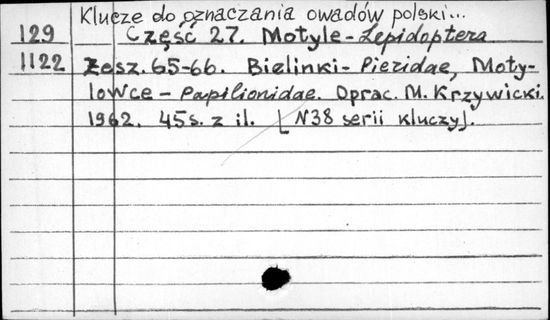 Klucze do oznaczania owadów polski...
129 Część 27. Motyle-Lepidoptera
1122 Zesz. 65-66. Bielinki- Pieridae, Moty-
lowce - Papilionidae. Oprac. M. Krzywicki.
1962. 45s. z il. [N38 serii kluczy].